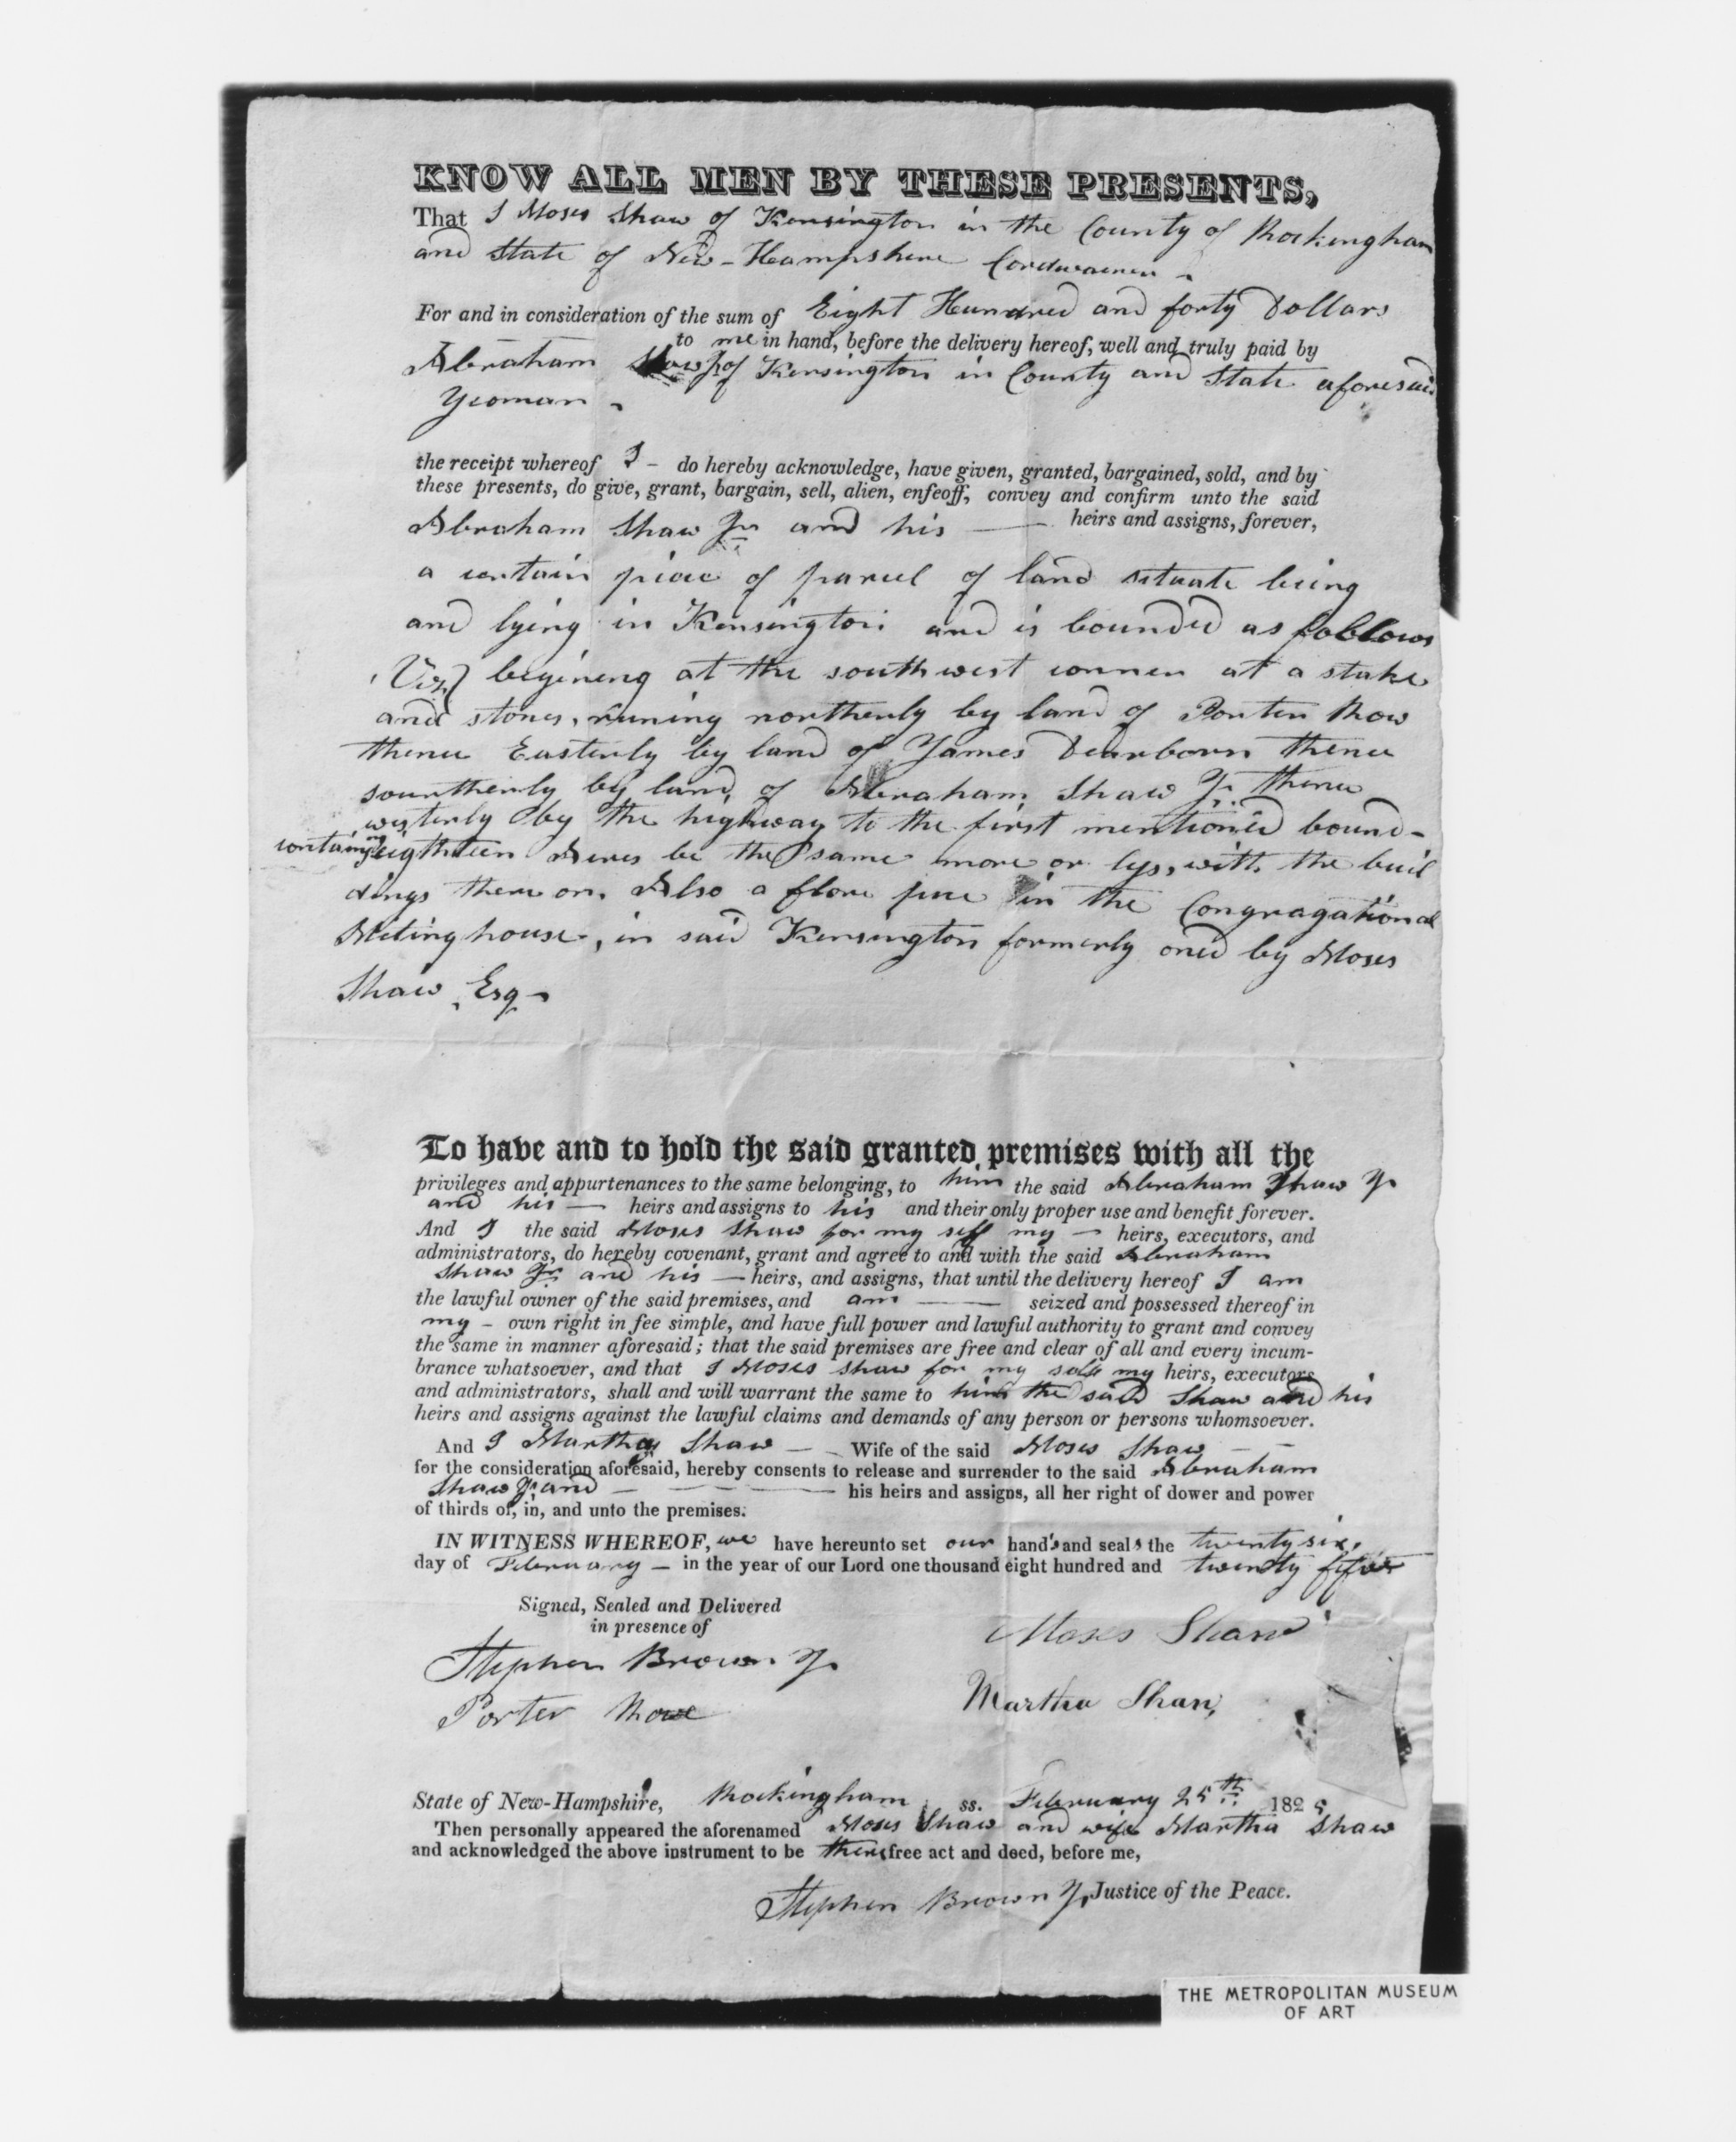 KNOW ALL MEN BY THESE PRESENTS,
That I Moses Shaw of Kensington in the County of Rockingham
and State of New-Hampshire Cordwainer
For and in consideration of the sum of Eight Hundred and forty Dollars
to me in hand, before the delivery hereof, well and truly paid by
Abraham Shaw Jr of Kensington in County and State aforesaid
Yeoman
the receipt whereof I – do hereby acknowledge, have given, granted, bargained, sold, and by
these presents, do give, grant, bargain, sell, alien, enfeoff, convey and confirm unto the said
Abraham Shaw Jr and his — heirs and assigns, forever,
a certain piece of parcel of land situate being
and lying in Kensington and is bounded as follows
(Viz) begining at the southwest corner at a stake
and stones, runing northerly by land of Porter Row
thence Easterly by land of James Dearborn thence
sountherly by land of Abraham Shaw Jr. thence
westerly by the highway to the first mentioned bound-
containing eighteen Acres be the same more or less, with the buil
dings there on. Also a flore pue in the Congragational
Meting house, in said Kensington formerly oned by Moses
Shaw Esq
To have and to hold the said granted premises with all the
privileges and appurtenances to the same belonging, to him the said Abraham Shaw Jr
and his — heirs and assigns to his and their only proper use and benefit forever.
And I the said Moses Shaw for my self my – heirs, executors, and
administrators, do hereby covenant, grant and agree to and with the said Abraham
Shaw Jr and his — heirs, and assigns, that until the delivery hereof I am
the lawful owner of the said premises, and am — seized and possessed thereof in
my – own right in fee simple, and have full power and lawful authority to grant and convey
the same in manner aforesaid; that the said premises are free and clear of all and every incum-
brance whatsoever, and that I Moses Shaw for my self my heirs, executors
and administrators, shall and will warrant the same to him the said Shaw and his
heirs and assigns against the lawful claims and demands of any person or persons whomsoever.
And I Martha Shaw — Wife of the said Moses Shaw
for the consideration aforesaid, hereby consents to release and surrender to the said Abraham
Shaw Jr and — his heirs and assigns, all her right of dower and power
of thirds of, in, and unto the premises.
IN WITNESS WHEREOF, we have hereunto set our hands and seals the twenty six,
day of February – in the year of our Lord one thousand eight hundred and twenty
Signed, Sealed and Delivered
in presence of
Moses Shaw
Stephen Brown Jr
Martha Shaw
Porter Rowe
State of New-Hampshire, Rockingham ss. February 25th 1825
Then personally appeared the aforenamed Moses Shaw and wife Martha Shaw
and acknowledged the above instrument to be free act and deed, before me,
Stephen Brown Jr Justice of the Peace.
THE METROPOLITAN MUSEUM
OF ART